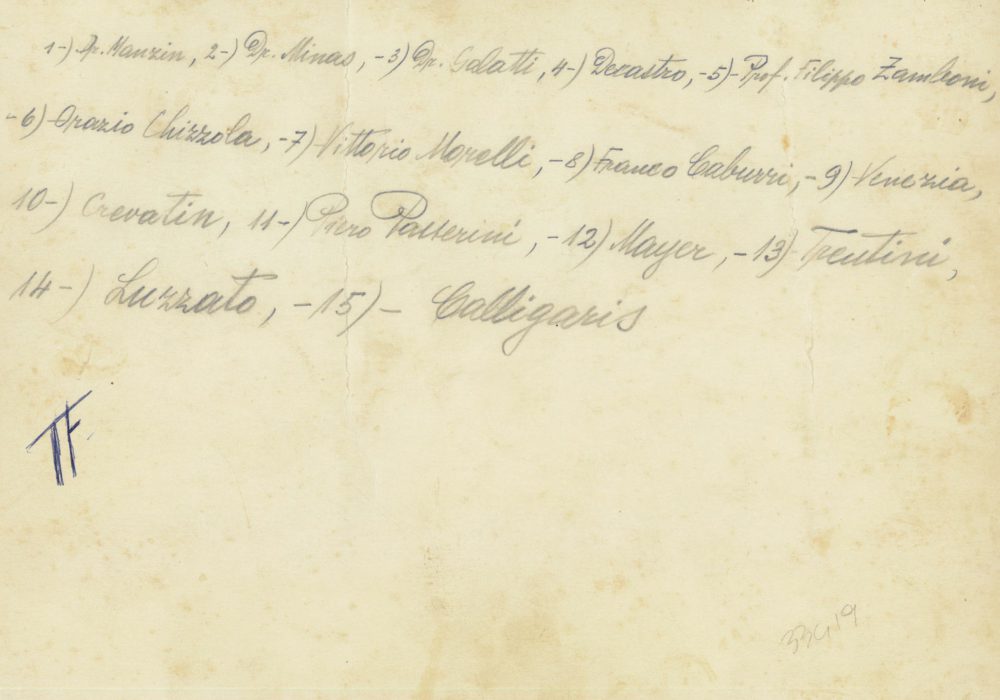 1-) Dr. Manzin, 2-) Dr. Minas, -3) Dr. Galatti, 4-) Decastro, -5)- Prof. Filippo Zamboni,
-6) Orazio Chizzola, -7) Vittorio Morelli, -8) Franco Caburri, -9) Venezia,
10-) Crevatin, 11-) Piero Passerini, -12) Mayer, -13) Trentini,
14-) Luzzato, -15)- Calligaris
TF